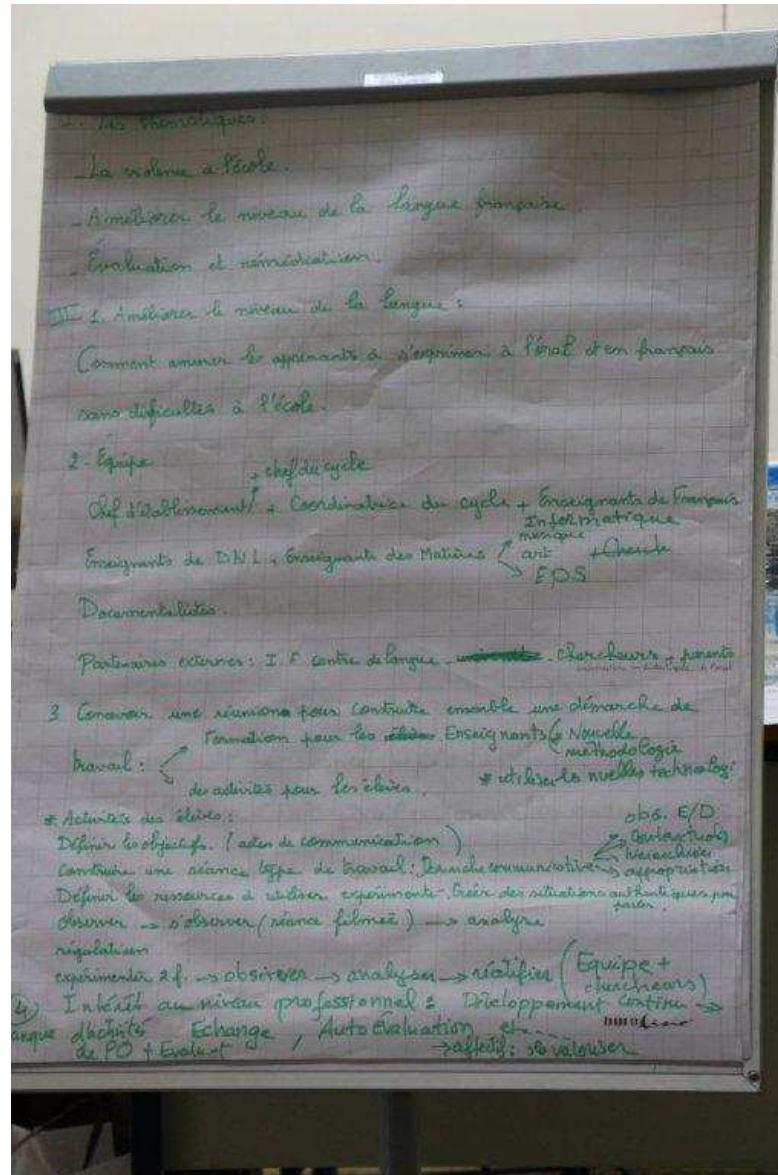 Les thématiques :
La violence à l'école.
- Améliorer le niveau de la langue française.
- Évaluation et rémédiation.
II 1. Améliorer le niveau de la langue :
Comment amener les apprenants à s'exprimer à l'oral et en français
sans dificultés à l'école.
2 - Équipe
+ chef du cycle
Chef d'établissement + Coordinatrice du cycle + Enseignants de Français
Informatique
musique
Enseignants de DNL, Enseignants des Matières art
EPS
Documentalistes.
Partenaires externes : I.F centre de langue - chercheurs - parents
3 Concevoir une réunion pour construire ensemble une démarche de
Formation pour les Enseignants Nouvelle
méthodologie
travail :
des activités pour les élèves. * utiliser les nuelles technologi
* Activités des élèves : obs. E/D
Définir les objectifs. (actes de communication)
hiérarchisés
Construire une séance type de travail : Démarche communicative appropriation
Définir les ressources à utiliser expérimenter. Créer des situations authentiques pr
parler.
Observer → s'observer (séance filmée) → analyse
régulation
expérimenter 2 f. → observer → analyser → réctifier (Equipe +
chercheurs)
4) Intérêt au niveau professionnel : Développement continu →
Echange, Auto évaluation et
de PO + Evaluat → affectif : se valoriser